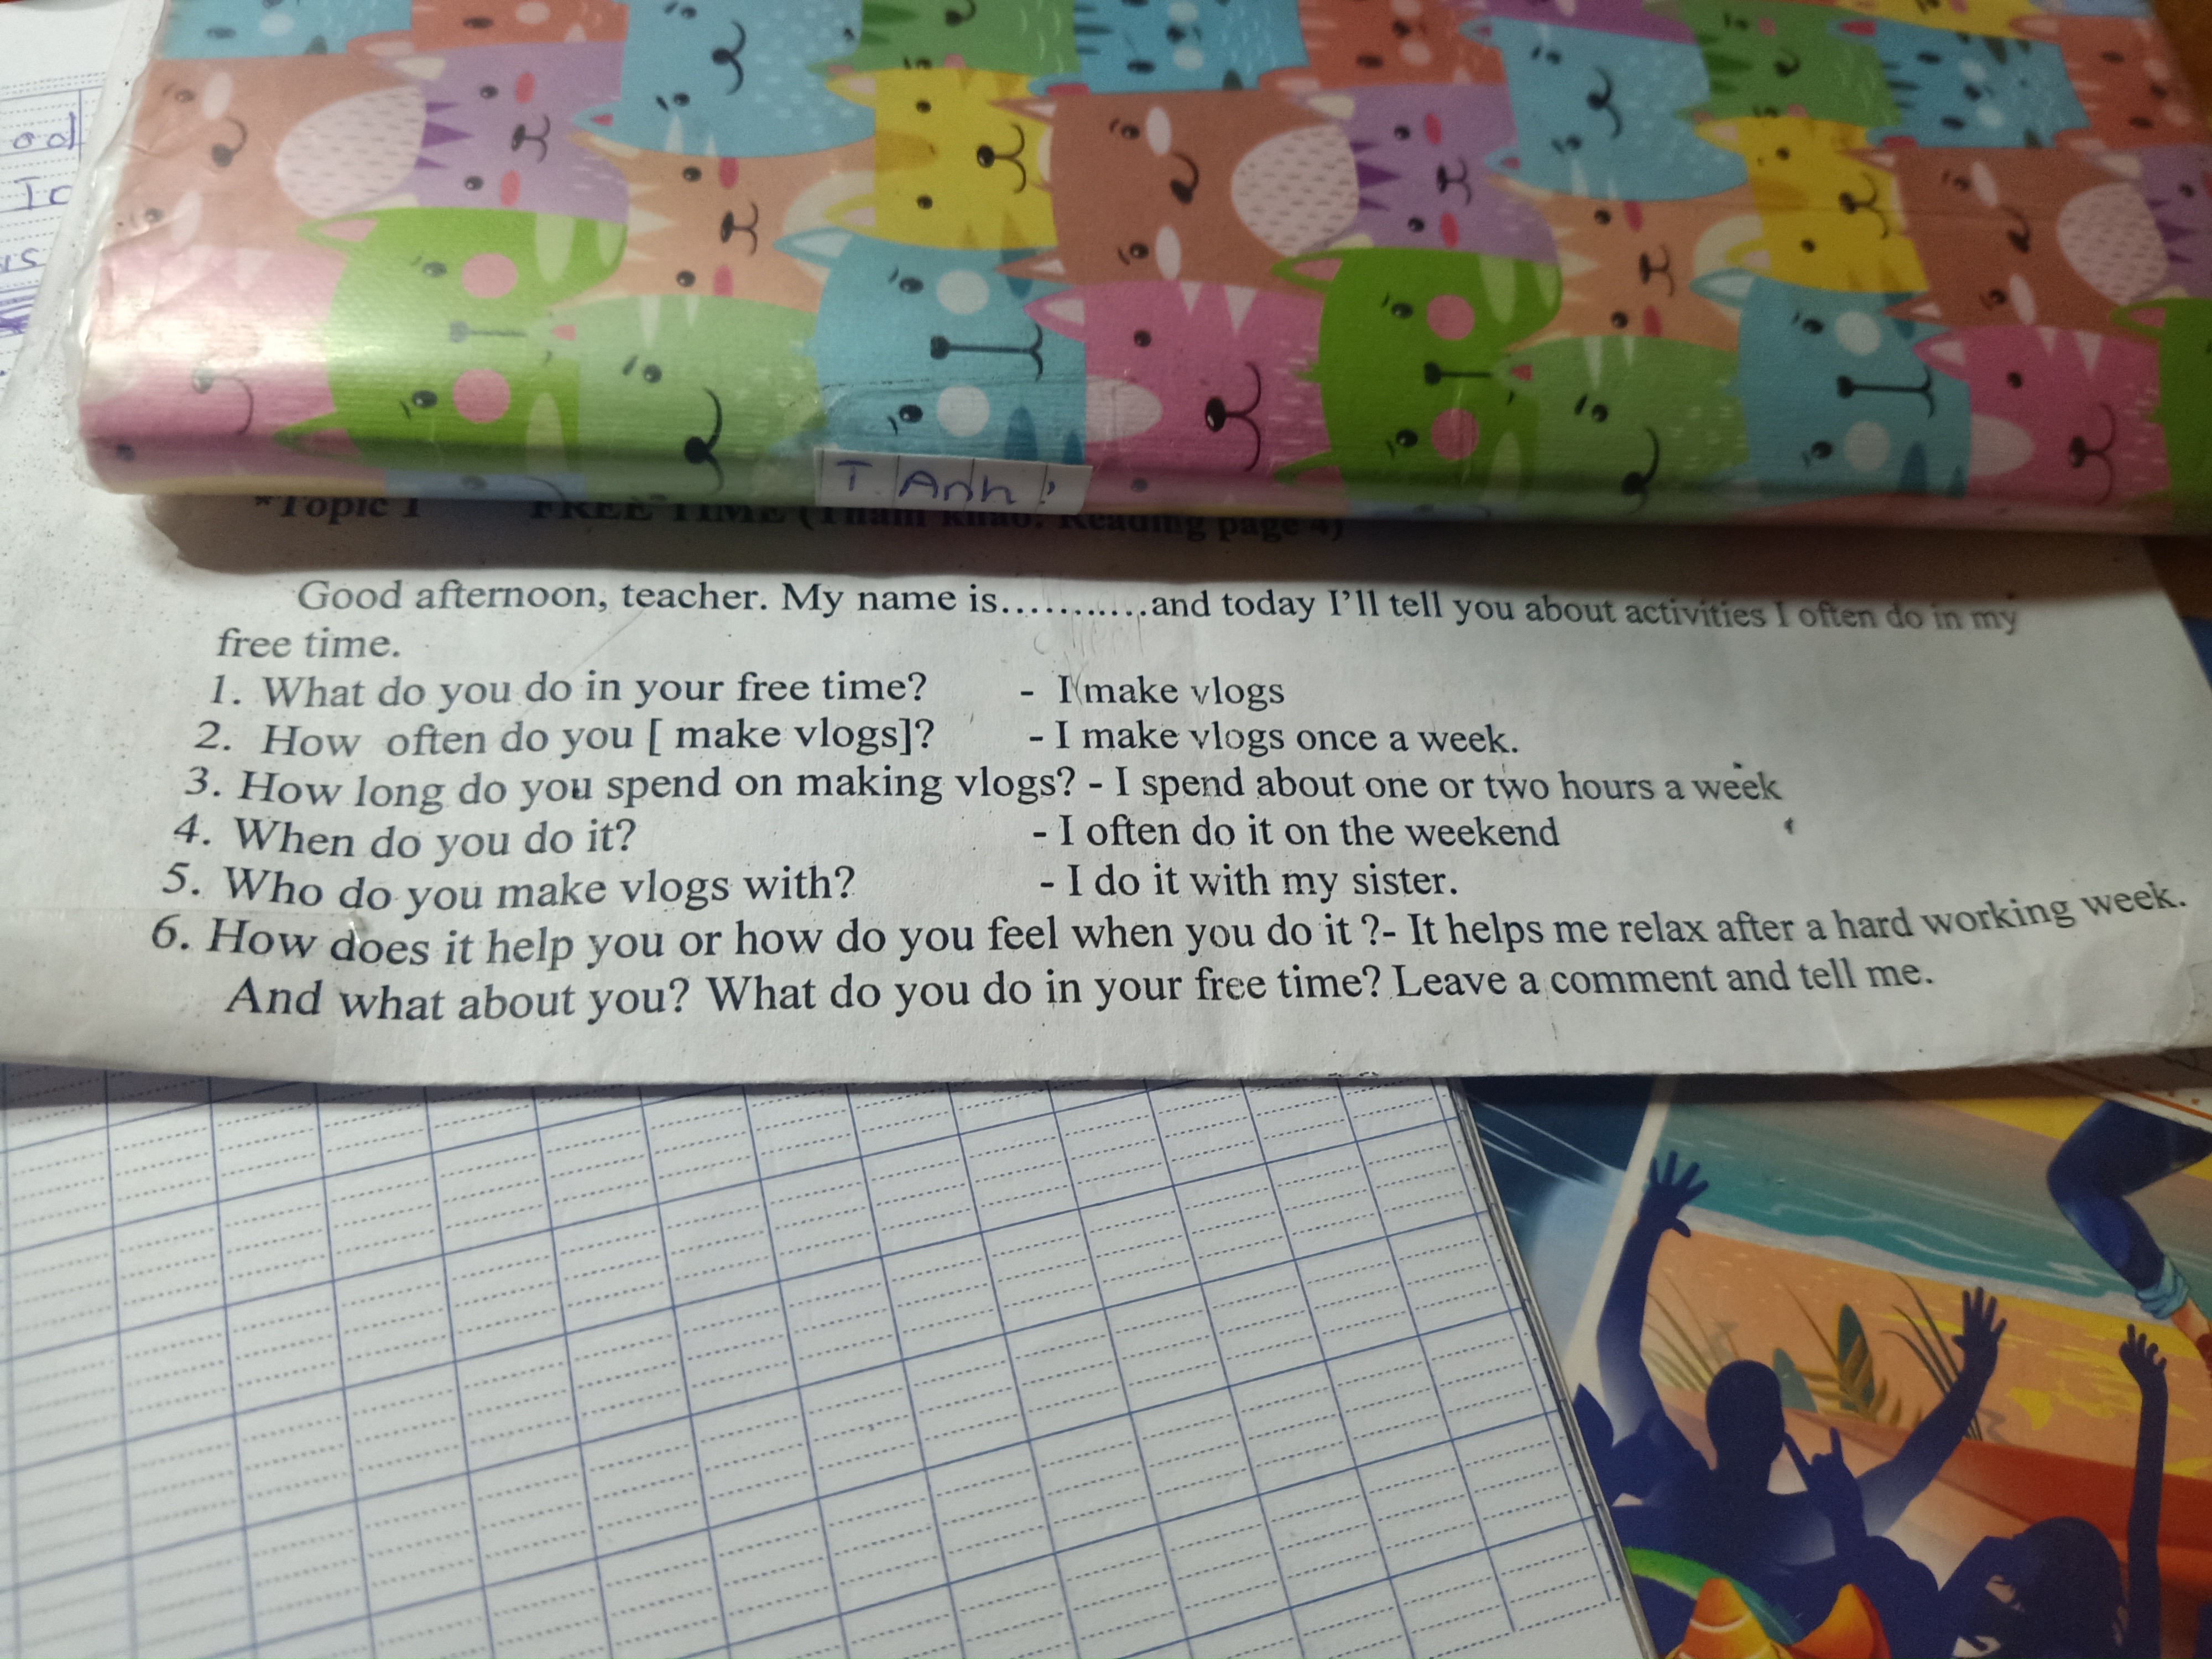 od
Ic
us
T. Anh
*Topic 1 FREE TIME (Tham khảo: Reading page 4)
Good afternoon, teacher. My name is...........and today I'll tell you about activities I often do in my
free time.
1. What do you do in your free time? - I make vlogs
2. How often do you [ make vlogs]? - I make vlogs once a week.
3. How long do you spend on making vlogs? - I spend about one or two hours a week
4. When do you do it? - I often do it on the weekend
5. Who do you make vlogs with? - I do it with my sister.
6. How does it help you or how do you feel when you do it ?- It helps me relax after a hard working week.
And what about you? What do you do in your free time? Leave a comment and tell me.